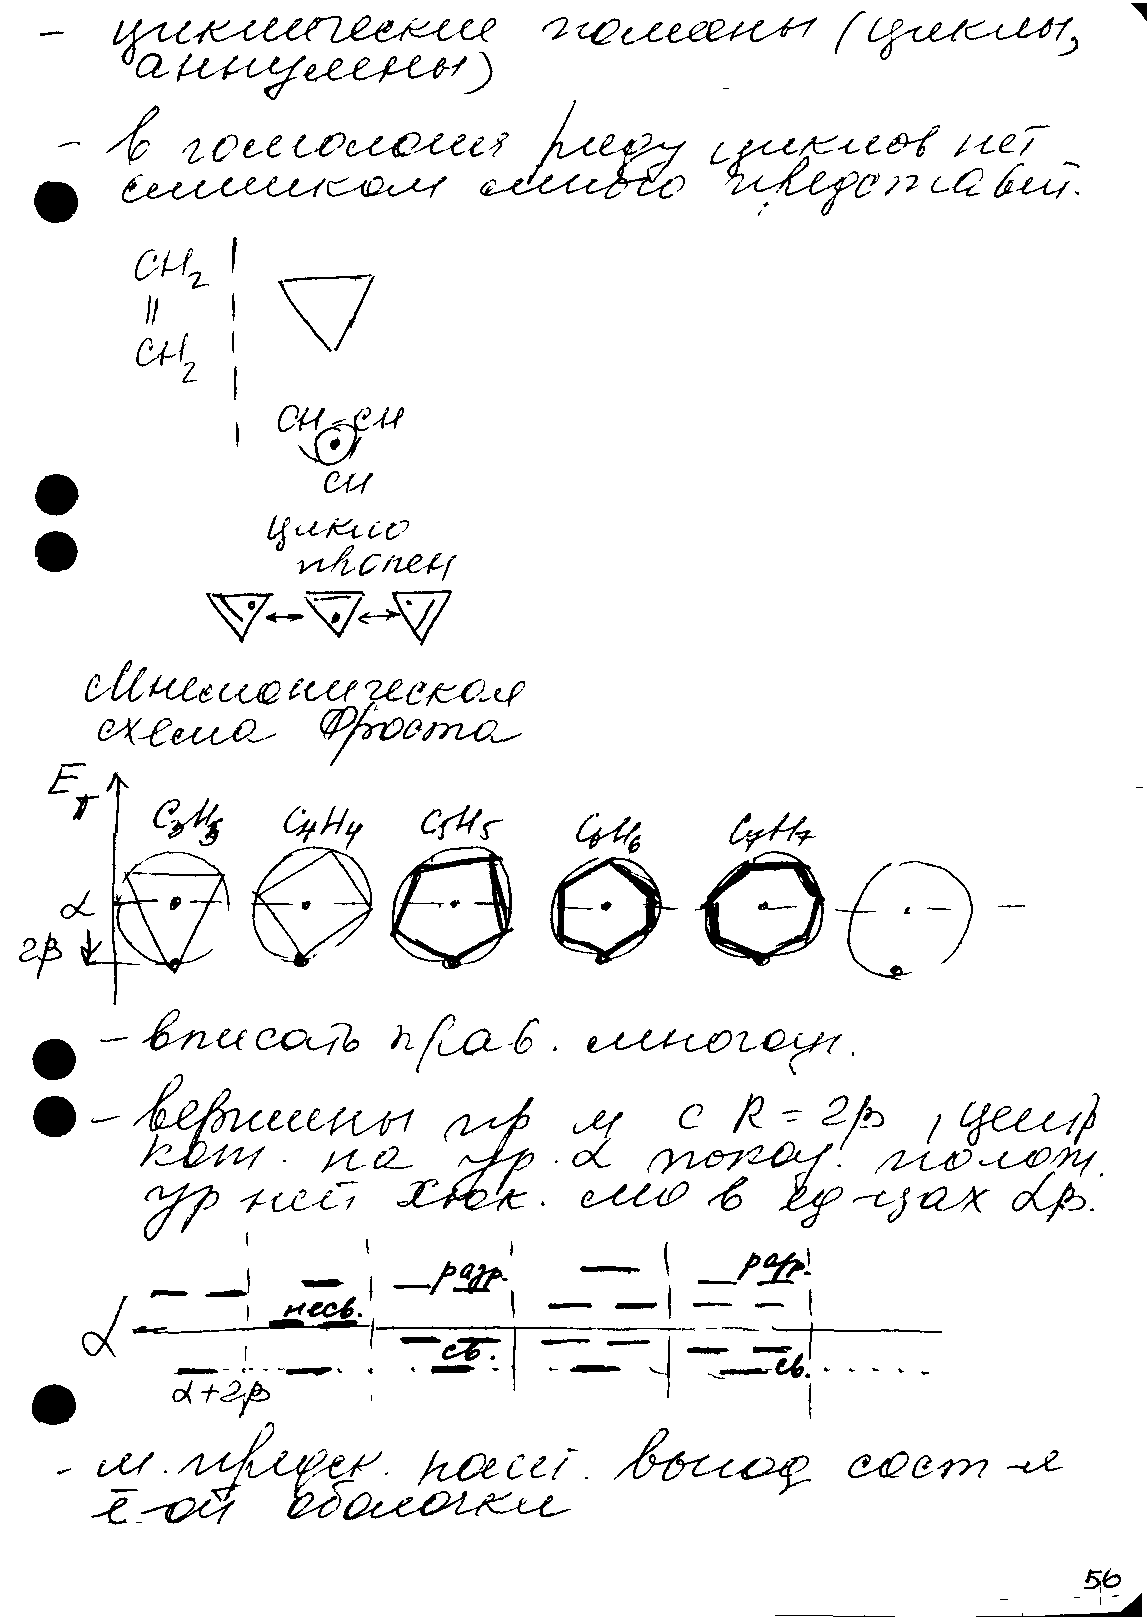 - циклические полиены (циклы,
аннулены)
- в гомологич ряду циклов нет
слишком много представит.
CH2
||
CH2
CH-CH
CH
цикло
пропен
Мнемоническая
схема Фроста
Eπ
C3H3 C4H4 C5H5 C6H6 C7H7
α
2β
- вписать прав. многоуг.
- вершины пр м с R = 2β, центр
кот. на ур. α показ. полож.
ур ней Хюк. мо в ед-цах αβ.
разр. разр.
несв.
α
св. св.
α+2β
- м. предск. наиб. выгод сост-я
ē-ой оболочки
56